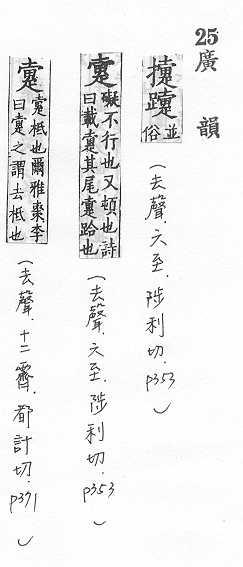 25廣韻
並
俗
(去聲.六至.陟利切.P353)
疐
礙不行也又頓也詩
曰載疐其尾疐跲也
(去聲.六至.陟利切.P353)
疐
疐柢也爾雅棗李
曰疐之謂去柢也
(去聲.十二霽.都計切.P371)